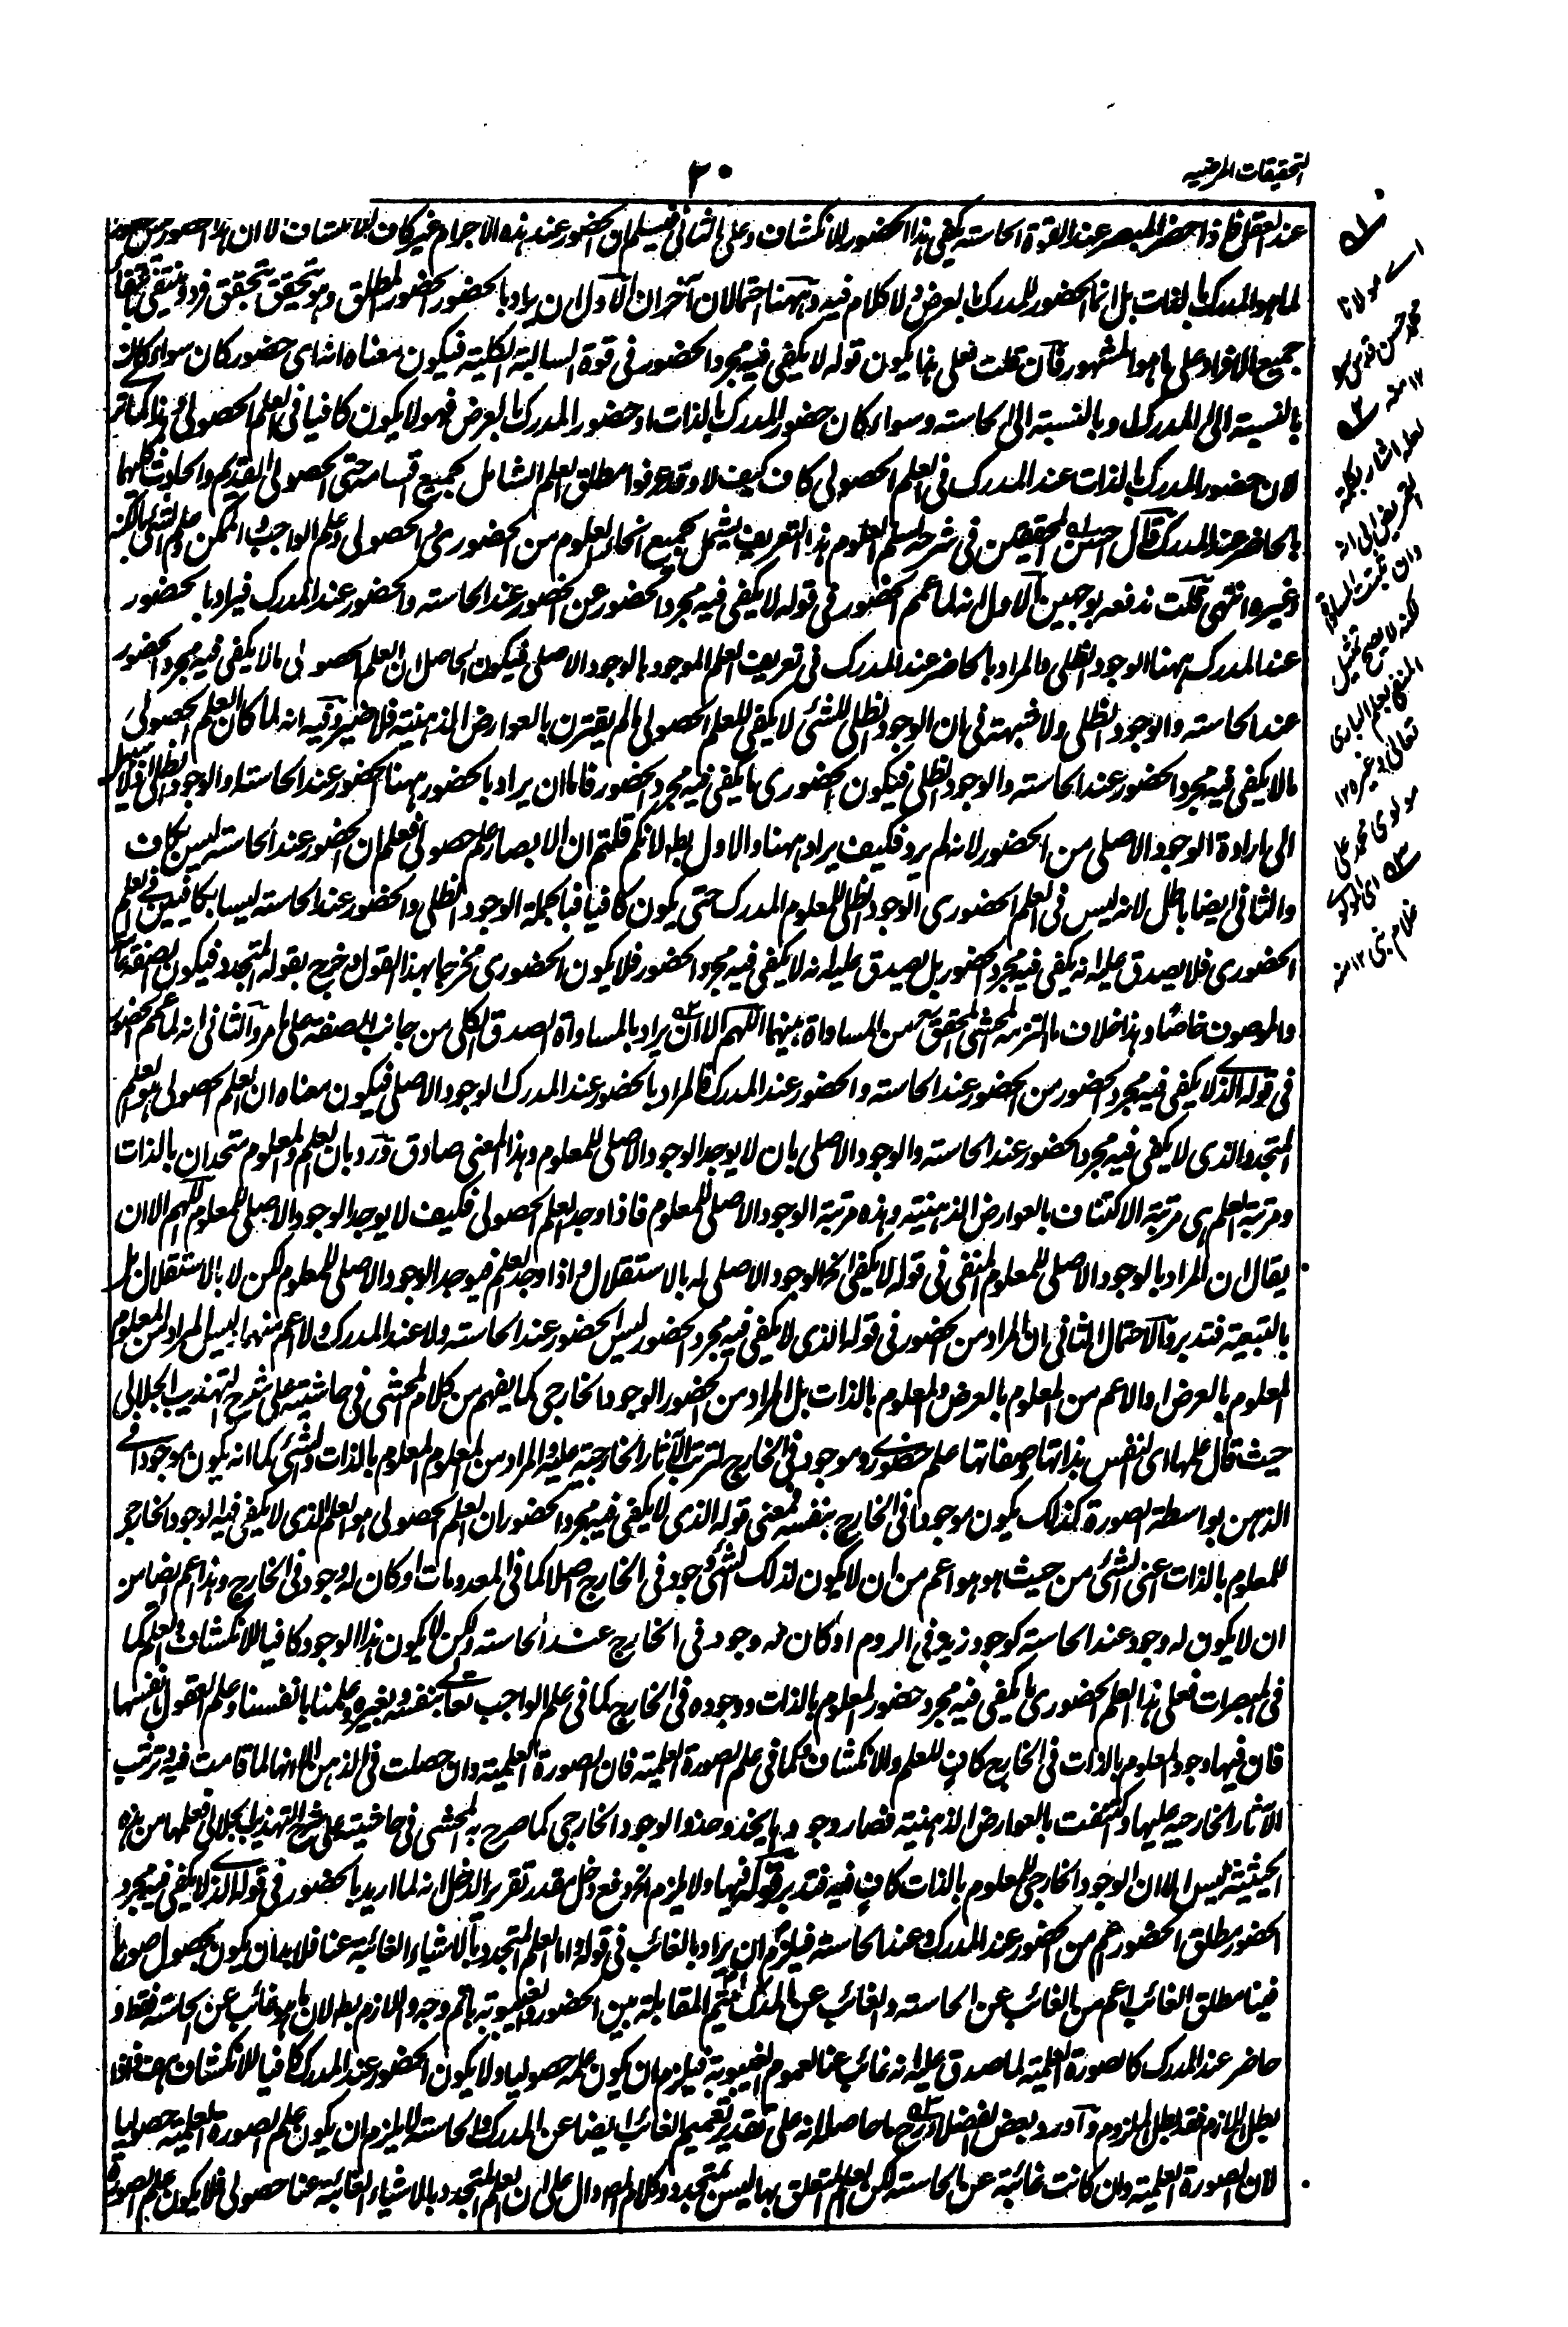 التحقيقات المرضيه
٢٠
عند العقل فاذا حضر المبصر عند القوة الحاسته يكفى هذا الحضور للانكشاف وعلى الثانى فيسلم ان الحضور عند هذه الاجرام غير كاف للانكشاف الا ان هذا الحضور ليس حضورا
لما هو المدرك بالذات بل انما الحضور للمدرك بالعرض ولا كلام فيه وههنا احتمالان آخران الاول ان يراد بالحضور الحضور المطلق وهو يتحقق بتحقق فرد وينتفى بانتفاء
جميع الافراد على ما هو المشهور فآن قلت فعلى هذا يكون قوله لا يكفى فيه مجرد الحضور فى قوة السالبة الكلية فيكون معناه ان اى حضور كان سواء كان
بالنسبة الى المدرك او بالنسبة الى الحاسته وسواء كان حضور المدرك بالذات او حضور المدرك بالعرض فهو لا يكون كافيا فى العلم الحصولى وهذا كما ترى
لان حضور المدرك بالذات عند المدرك فى العلم الحصولى كاف كيف لا وقد عرفوا مطلق العلم الشامل لجميع اقسامه حتى الحصولى القديم والحادث كليهما
بالحاضر عند المدرك قال احسن المحققين فى شرحه لسلم العلوم هذا التعريف يشمل جميع انحاء العلوم من الحضورى والحصولى وعلم الواجب والممكن وعلم الشئ بالكنه
وغيره انتهى قلت ندفعه بوجهين الاول انه لما عمم الحضور فى قوله لا يكفى فيه مجرد الحضور عن الحضور عند الحاسته والحضور عند المدرك فيراد بالحضور
عند المدرك ههنا الوجود الظلى والمراد بالحاضر عند المدرك فى تعريف العلم الموجود بالوجود الاصلى فيكون الحاصل ان العلم الحصولى ما لا يكفى فيه مجرد الحضور
عند الحاسته والوجود الظلى ولا شبهة فى ان الوجود الظلى للشئ لا يكفى للعلم الحصولى ما لم يقترن بالعوارض الذهنية فلا ضير وفيه انه لما كان العلم الحصولى
ما لا يكفى فيه مجرد الحضور عند الحاسته والوجود الظلى فيكون الحضورى ما يكفى فيه مجرد الحضور فاما ان يراد بالحضور ههنا الحضور عند الحاسته او الوجود الظلى اذ لا سبيل
الى ارادة الوجود الاصلى من الحضور لانه لم يرد فكيف يراد ههنا والاول بط لانكم قلتم ان الابصار علم حصولى فعلم ان الحضور عند الحاسته ليس بكاف
والثانى ايضا باطل لانه ليس فى العلم الحضورى الوجود الظلى للمعلوم المدرك حتى يكون كافيا فبالجملة الوجود الظلى والحضور عند الحاسته ليسا بكافيين فى العلم
الحضورى فلا يصدق عليه انه يكفى فيه مجرد الحضور بل يصدق عليه انه لا يكفى فيه مجرد الحضور فلا يكون الحضورى مخرجا بهذا القول وخرج بقوله المتجدد فيكون الصفة عاما
والموصوف خاصا وهذا خلاف ما التزمه المحشى المحقق من المساواة بينهما اللهم الا ان يراد بالمساواة الصدق الكلى من جانب الصفة على ما مر والثانى انه لما عمم الحضور
فى قوله الذى لا يكفى فيه مجرد الحضور من الحضور عند الحاسته والحضور عند المدرك فالمراد بالحضور عند المدرك الوجود الاصلى فيكون معناه ان العلم الحصولى هو العلم
المتجدد الذى لا يكفى فيه مجرد الحضور عند الحاسته والوجود الاصلى بان لا يوجد الوجود الاصلى للمعلوم وهذا المعنى صادق ورد بان العلم والمعلوم متحدان بالذات
ومرتبة العلم هى مرتبة الاكتناف بالعوارض الذهنية وهذه مرتبة الوجود الاصلى للمعلوم فاذا وجد العلم الحصولى فكيف لا يوجد الوجود الاصلى للمعلوم اللهم الا ان
يقال ان المراد بالوجود الاصلى للمعلوم المنفى فى قوله لا يكفى الخ الوجود الاصلى له بالاستقلال واذا وجد العلم فيوجد الوجود الاصلى للمعلوم لكن لا بالاستقلال بل
بالتبعية فتدبر والاحتمال الثانى ان المراد من الحضور فى قوله الذى لا يكفى فيه مجرد الحضور ليس الحضور عند الحاسته ولا عند المدرك ولا اعم منهما وليس المراد من المعلوم
المعلوم بالعرض او الاعم من المعلوم بالعرض والمعلوم بالذات بل المراد من الحضور الوجود الخارجى كما يفهم من كلام المحشى فى حاشيته على شرح التهذيب الجلالى
حيث قال علمها اى النفس بذاتها وصفاتها علم حضورى وموجود فى الخارج لترتب الآثار الخارجية عليه والمراد من المعلوم المعلوم بالذات والشئ كما انه يكون موجودا فى
الذهن بواسطة الصورة كذلك يكون موجودا فى الخارج بنفسه فمعنى قوله الذى لا يكفى فيه مجرد الحضور ان العلم الحصولى هو العلم الذى لا يكفى فيه الوجود الخارجى
للمعلوم بالذات اعنى الشئ من حيث هو هو اعم من ان لا يكون لذلك الشئ وجود فى الخارج اصلا كما فى المعدومات او كان له وجود فى الخارج وهذا اعم ايضا من
ان لا يكون له وجود عند الحاسته كوجود زيد فى الروم او كان له وجود فى الخارج عند الحاسته ولكن لا يكون هذا الوجود كافيا للانكشاف والعلم كما
فى المبصرات فعلى هذا العلم الحضورى ما يكفى فيه مجرد حضور المعلوم بالذات ووجوده فى الخارج كما فى علم الواجب تعالى بنفسه وبغيره وعلمنا بانفسنا وعلم العقول بانفسها
فان فيها وجود المعلوم بالذات فى الخارج كاف للعلم والانكشاف وكما فى علم الصورة العلمية فان الصورة العلمية وان حصلت فى الذهن الا انها لما قامت فيه وترتب
الآثار الخارجيه عليها واكتنفت بالعوارض الذهنية فصار وجودها يحذو حذو الوجود الخارجى كما صرح به المحشى فى حاشيته على شرح التهذيب الجلالى فعلمها من هذه
الحيثية ليس الا ان الوجود الخارجى للمعلوم بالذات كاف فيه فتدبر قوله فيها ولا يلزم الخ دفع دخل مقدر تقرير الدخل انه لما اريد بالحضور فى قوله الذى لا يكفى فيه مجرد
الحضور مطلق الحضور اعم من الحضور عند المدرك وعند الحاسته فيلزم ان يراد بالغائب فى قوله واما العلم المتجدد بالاشياء الغائبة عنا فلا بد ان يكون بحصول صورها
فينا مطلق الغائب اعم من الغائب عن الحاسته والغائب عن المدرك ليتم المقابلة بين الحضور والغيبوبة باتم وجه واللازم بط لان ما هو غائب عن الحاسته فقط و
حاضر عند المدرك كالصورة العلمية لما صدق عليه انه غائب عنا لعموم الغيبوبة فيلزم ان يكون علمه حصوليا ولا يكون الحضور عند المدرك كافيا للانكشاف هف فاذا
بطل اللازم فقد بطل الملزوم وآورد بعض الفضلاء حاصله انه على تقدير تعميم الغائب ايضا عن المدرك والحاسته لا يلزم ان يكون علم الصورة العلمية حصوليا
لان الصورة العلمية وان كانت غائبة عن الحاسته لكن العلم المتعلق بها ليس بمتجدد وكلام المص دال على ان العلم المتجدد بالاشياء الغائبة عنا حصولى فلا يكون علم الصورة
اے مولانا
محمد حسن قدس سره
١٢ منه
لعله اشار بكلمة
التمريض الى انه
وان ثبت المساواة
لكنه لا يصح تمثيل
المنفى بعلم البارى
تعالى وغيره ١٢
مولوى محمد على
اى المولوى
غلام نبى ١٢ منه